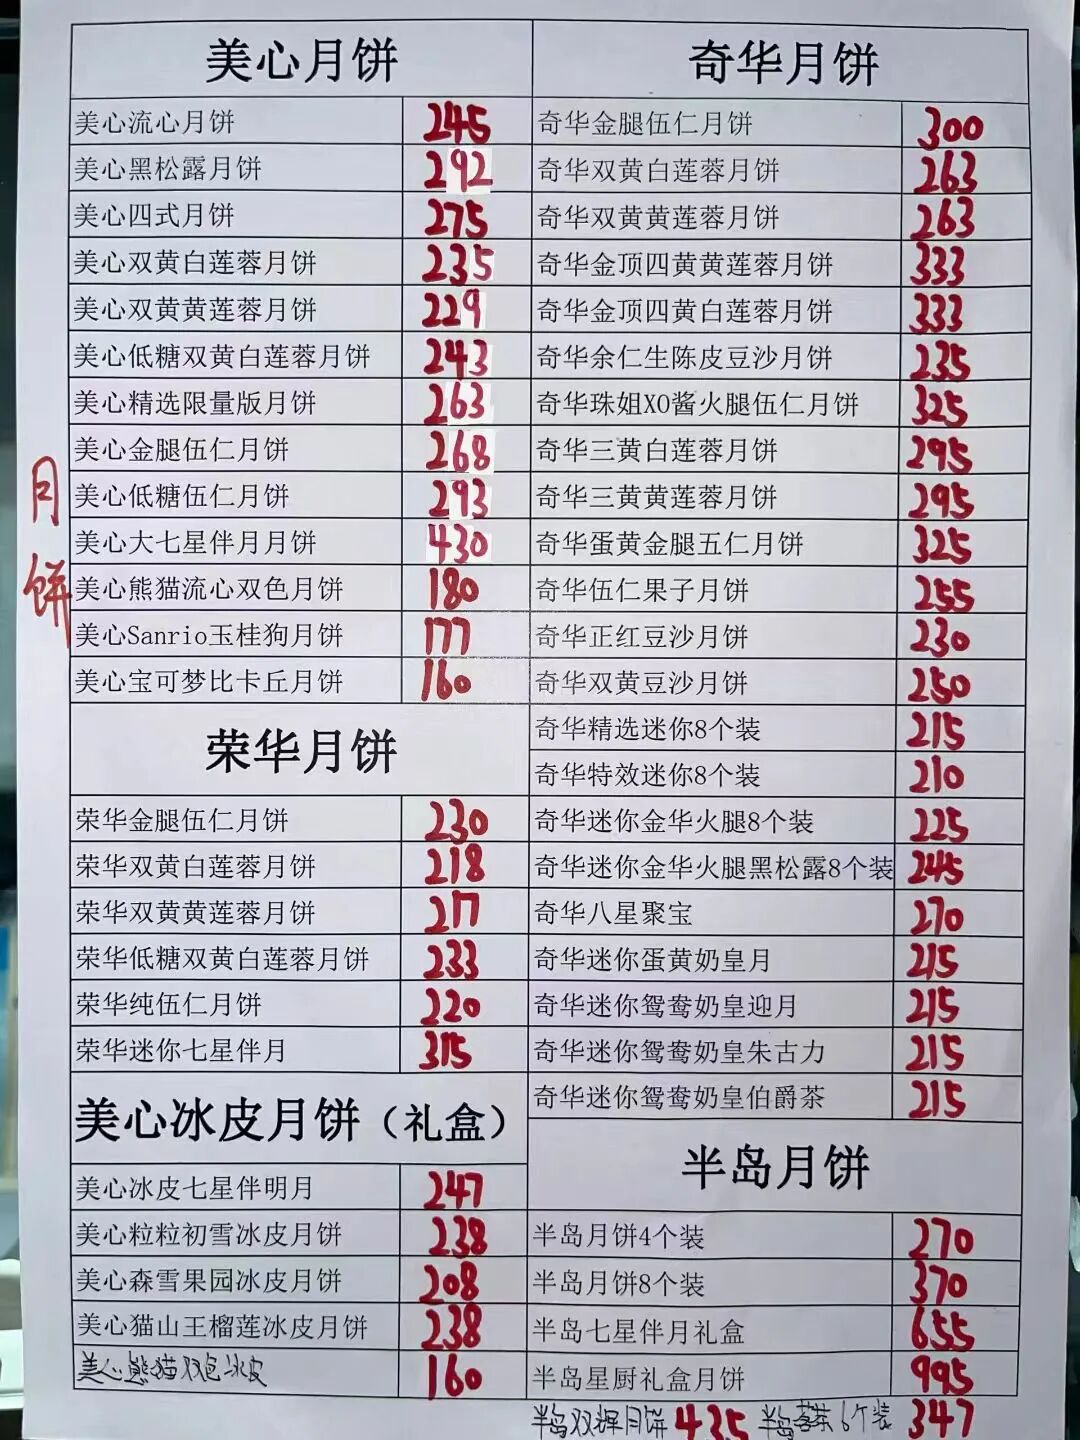 月饼
美心月饼
美心流心月饼 245
美心黑松露月饼 292
美心四式月饼 275
美心双黄白莲蓉月饼 235
美心双黄黄莲蓉月饼 229
美心低糖双黄白莲蓉月饼 243
美心精选限量版月饼 263
美心金腿伍仁月饼 268
美心低糖伍仁月饼 293
美心大七星伴月月饼 430
美心熊猫流心双色月饼 180
美心Sanrio玉桂狗月饼 177
美心宝可梦比卡丘月饼 160
荣华月饼
荣华金腿伍仁月饼 230
荣华双黄白莲蓉月饼 218
荣华双黄黄莲蓉月饼 217
荣华低糖双黄白莲蓉月饼 233
荣华纯伍仁月饼 220
荣华迷你七星伴月 315
美心冰皮月饼（礼盒）
美心冰皮七星伴明月 247
美心粒粒初雪冰皮月饼 238
美心森雪果园冰皮月饼 208
美心猫山王榴莲冰皮月饼 238
美心熊猫双色冰皮 160
奇华月饼
奇华金腿伍仁月饼 300
奇华双黄白莲蓉月饼 263
奇华双黄黄莲蓉月饼 263
奇华金顶四黄黄莲蓉月饼 333
奇华金顶四黄白莲蓉月饼 333
奇华余仁生陈皮豆沙月饼 235
奇华珠姐XO酱火腿伍仁月饼 325
奇华三黄白莲蓉月饼 295
奇华三黄黄莲蓉月饼 295
奇华蛋黄金腿五仁月饼 325
奇华伍仁果子月饼 255
奇华正红豆沙月饼 230
奇华双黄豆沙月饼 250
奇华精选迷你8个装 215
奇华特效迷你8个装 210
奇华迷你金华火腿8个装 225
奇华迷你金华火腿黑松露8个装 245
奇华八星聚宝 270
奇华迷你蛋黄奶皇月 215
奇华迷你鸳鸯奶皇迎月 215
奇华迷你鸳鸯奶皇朱古力 215
奇华迷你鸳鸯奶皇伯爵茶 215
半岛月饼
半岛月饼4个装 270
半岛月饼8个装 370
半岛七星伴月礼盒 655
半岛星厨礼盒月饼 995
半岛双辉月饼 435 半岛茗茶6个装 347